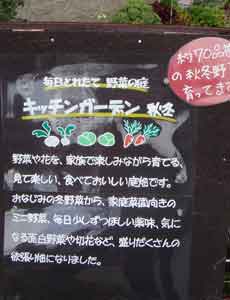 毎日とれたて 野菜の庭
キッチンガーデン 秋冬
野菜や花を、家族で楽しみながら育てる、
見て楽しい、食べておいしい庭畑です。
おなじみの冬野菜から、家庭菜園向きの
ミニ野菜、毎日少しずつほしい薬味、気に
なる面白野菜や切花など、盛りだくさんの
欲張り畑になりました。
約70品
の秋冬野
育ってき